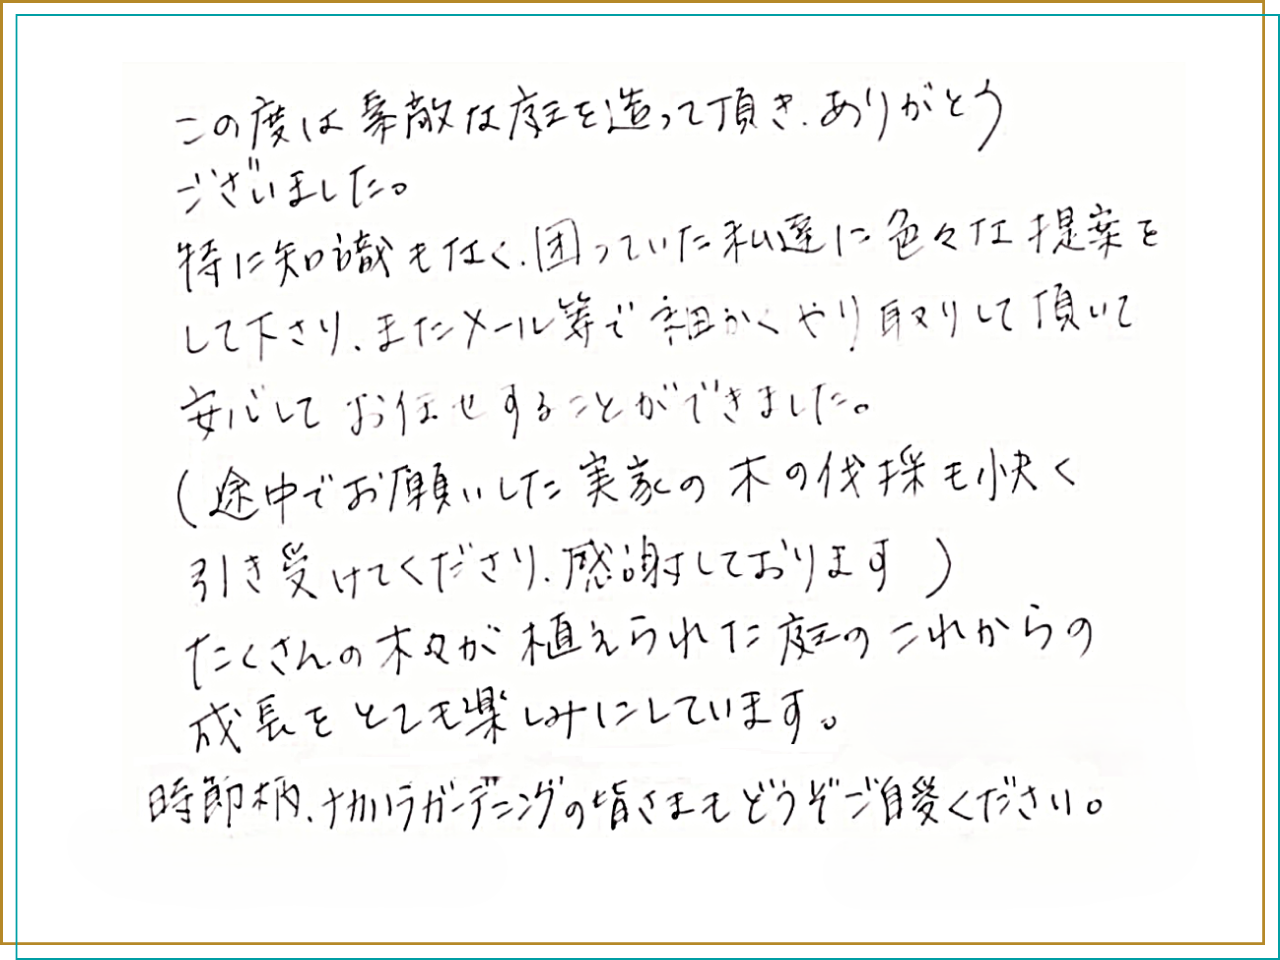 この度は素敵な庭を造って頂き、ありがとう
ございました。
特に知識もなく、困っていた私達に色々な提案を
して下さり、またメール等で細かくやり取りして頂いて
安心してお任せすることができました。
(途中でお願いした実家の木の伐採も快く
引き受けてくださり、感謝しております)
たくさんの木々が植えられた庭のこれからの
成長をとても楽しみにしています。
時節柄、ナカハラガーデニングの皆さまもどうぞご自愛ください。